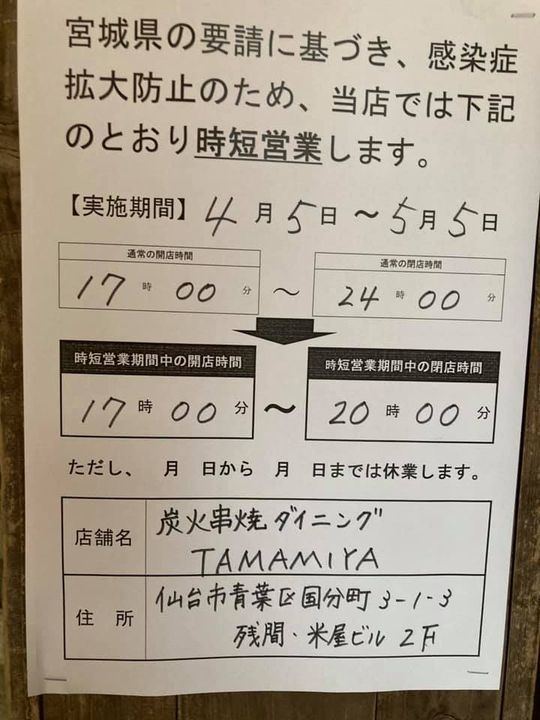 宮城県の要請に基づき、感染症
拡大防止のため、当店では下記
のとおり時短営業します。
【実施期間】4月5日〜5月5日
通常の開店時間 通常の閉店時間
17時00分 〜 24時00分
時短営業期間中の開店時間 時短営業期間中の閉店時間
17時00分 〜 20時00分
ただし、 月 日から 月 日までは休業します。
店舗名 炭火串焼ダイニング
TAMAMIYA
住 所 仙台市青葉区国分町3-1-3
残間・米屋ビル 2F